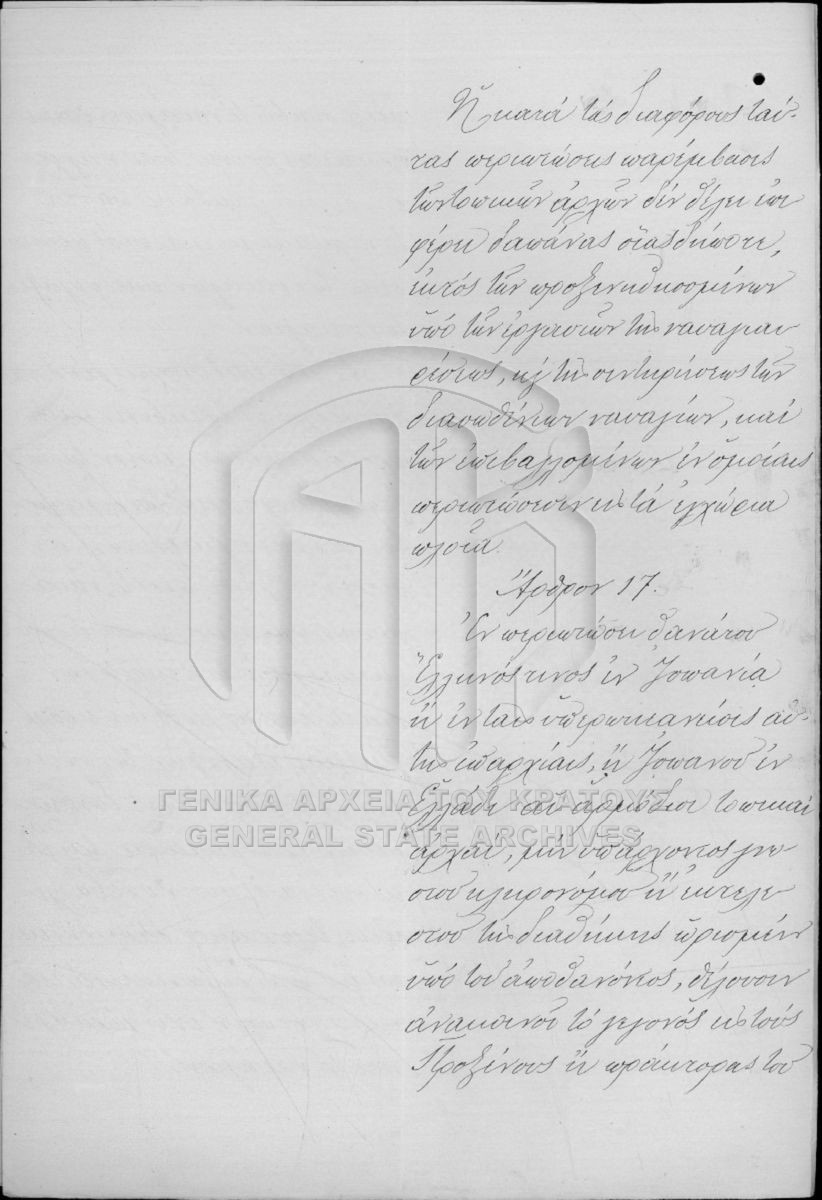 Ἡ κατὰ τὰς διαφόρους ταύ-
τας περιπτώσεις παρέμβασις
τῶν τοπικῶν ἀρχῶν δὲν θέλει ἐπι
φέρει δαπάνας οἱασδήποτε,
ἐκτὸς τῶν προξενηθησομένων
ὑπὸ τῶν ἐργασιῶν τῆς ναυαγιαι
ρέσεως, κ̀ τῆς συντηρήσεως τῶν
διασωθέντων ναυαγίων, καὶ
τῶν ἐπιβαλλομένων ἐν ὁμοίαις
περιπτώσεσιν εἰς τὰ ἐγχώρια
πλοῖα.
Ἄρθρον 17.
Ἐν περιπτώσει θανάτου
Ἕλληνός τινος ἐν Ἱσπανίᾳ
ἢ ἐν ταῖς ὑπερωκεανείοις αὐ-
τῆς ἐπαρχίαις, ἢ Ἱσπανοῦ ἐν
Ἑλλάδι αἱ ἁρμόδιοι τοπικαὶ
ἀρχαί, μὴ ὑπάρχοντος γνω-
στοῦ κληρονόμου ἢ ἐκτελε-
στοῦ τῆς διαθήκης ὡρισμένου
ὑπὸ τοῦ ἀποθανόντος, θέλουσιν
ἀνακοινοῖ τὸ γεγονὸς εἰς τοὺς
Προξένους ἢ πράκτορας τοῦ
ΓΕΝΙΚΑ ΑΡΧΕΙΑ ΤΟΥ ΚΡΑΤΟΥΣ
GENERAL STATE ARCHIVES